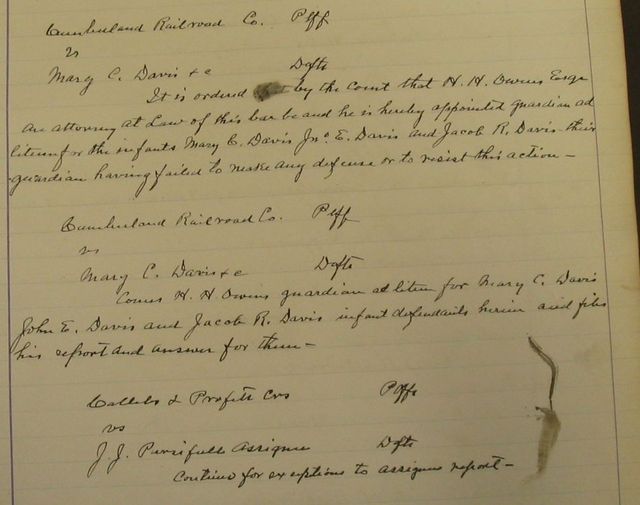 Cumberland Railroad Co. Plff
vs
Mary C. Davis &c Dfts
It is ordered by the Court that H. H. Owens Esqr
an attorney at Law of this bar be and he is hereby appointed guardian ad
litem for the infants Mary C. Davis Jno. E. Davis and Jacob R. Davis their
guardian having failed to make any defense or to resist this action -
Cumberland Railroad Co. Plff
vs
Mary C. Davis &c Dfts
Comes H. H. Owens guardian ad litem for Mary C. Davis
John E. Davis and Jacob R. Davis infant defendants herein and files
his report and answer for them -
& Profits Plffs
vs
J. J. Pursifull Assignee Dfts
Continued for exceptions to assignee report -